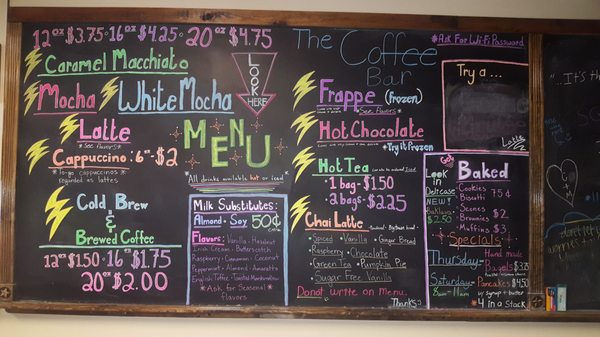 12oz $3.75 · 16oz $4.25 · 20oz $4.75
Caramel Macchiato
Mocha White Mocha
LOOK
HERE
Latte
*See flavors*
Cappuccino: 6oz - $2
*To-go cappuccinos
regarded as lattes
MENU
All drinks available hot or iced
Cold Brew
&
Brewed Coffee
12oz $1.50 · 16oz $1.75
20oz $2.00
Milk Substitutes:
Almond - Soy 50¢
Flavors: Vanilla - Hazelnut
Irish Cream - Butterscotch
Raspberry - Cinnamon - Coconut
Peppermint - Almond - Amaretto
English Toffee - Toasted Marshmallow
*Ask for Seasonal*
flavors
The Coffee
Bar
*Ask For Wi-Fi Password
Frappe (frozen)
*See flavors*
Hot Chocolate
*Try it Frozen
Hot Tea
· 1 bag - $1.50
· 2 bags - $2.25
Chai Latte
Spiced · Vanilla · Ginger Bread
Raspberry · Chocolate
Green Tea · Pumpkin Pie
Sugar Free Vanilla
Do not write on Menu.
Thanks
Try a ...
Latte
Look
in
Deli case
NEW!
Baklava
$2.50
Baked
Cookies 75¢
Biscotti
Scones $2.
Brownies
Muffins $3.
Specials
Thursday-
Hand made
Bagels $3.75
Saturday-
8am-11am
Pancakes $4.50
w/ syrup + butter
* 4 in a Stack
"..It's th